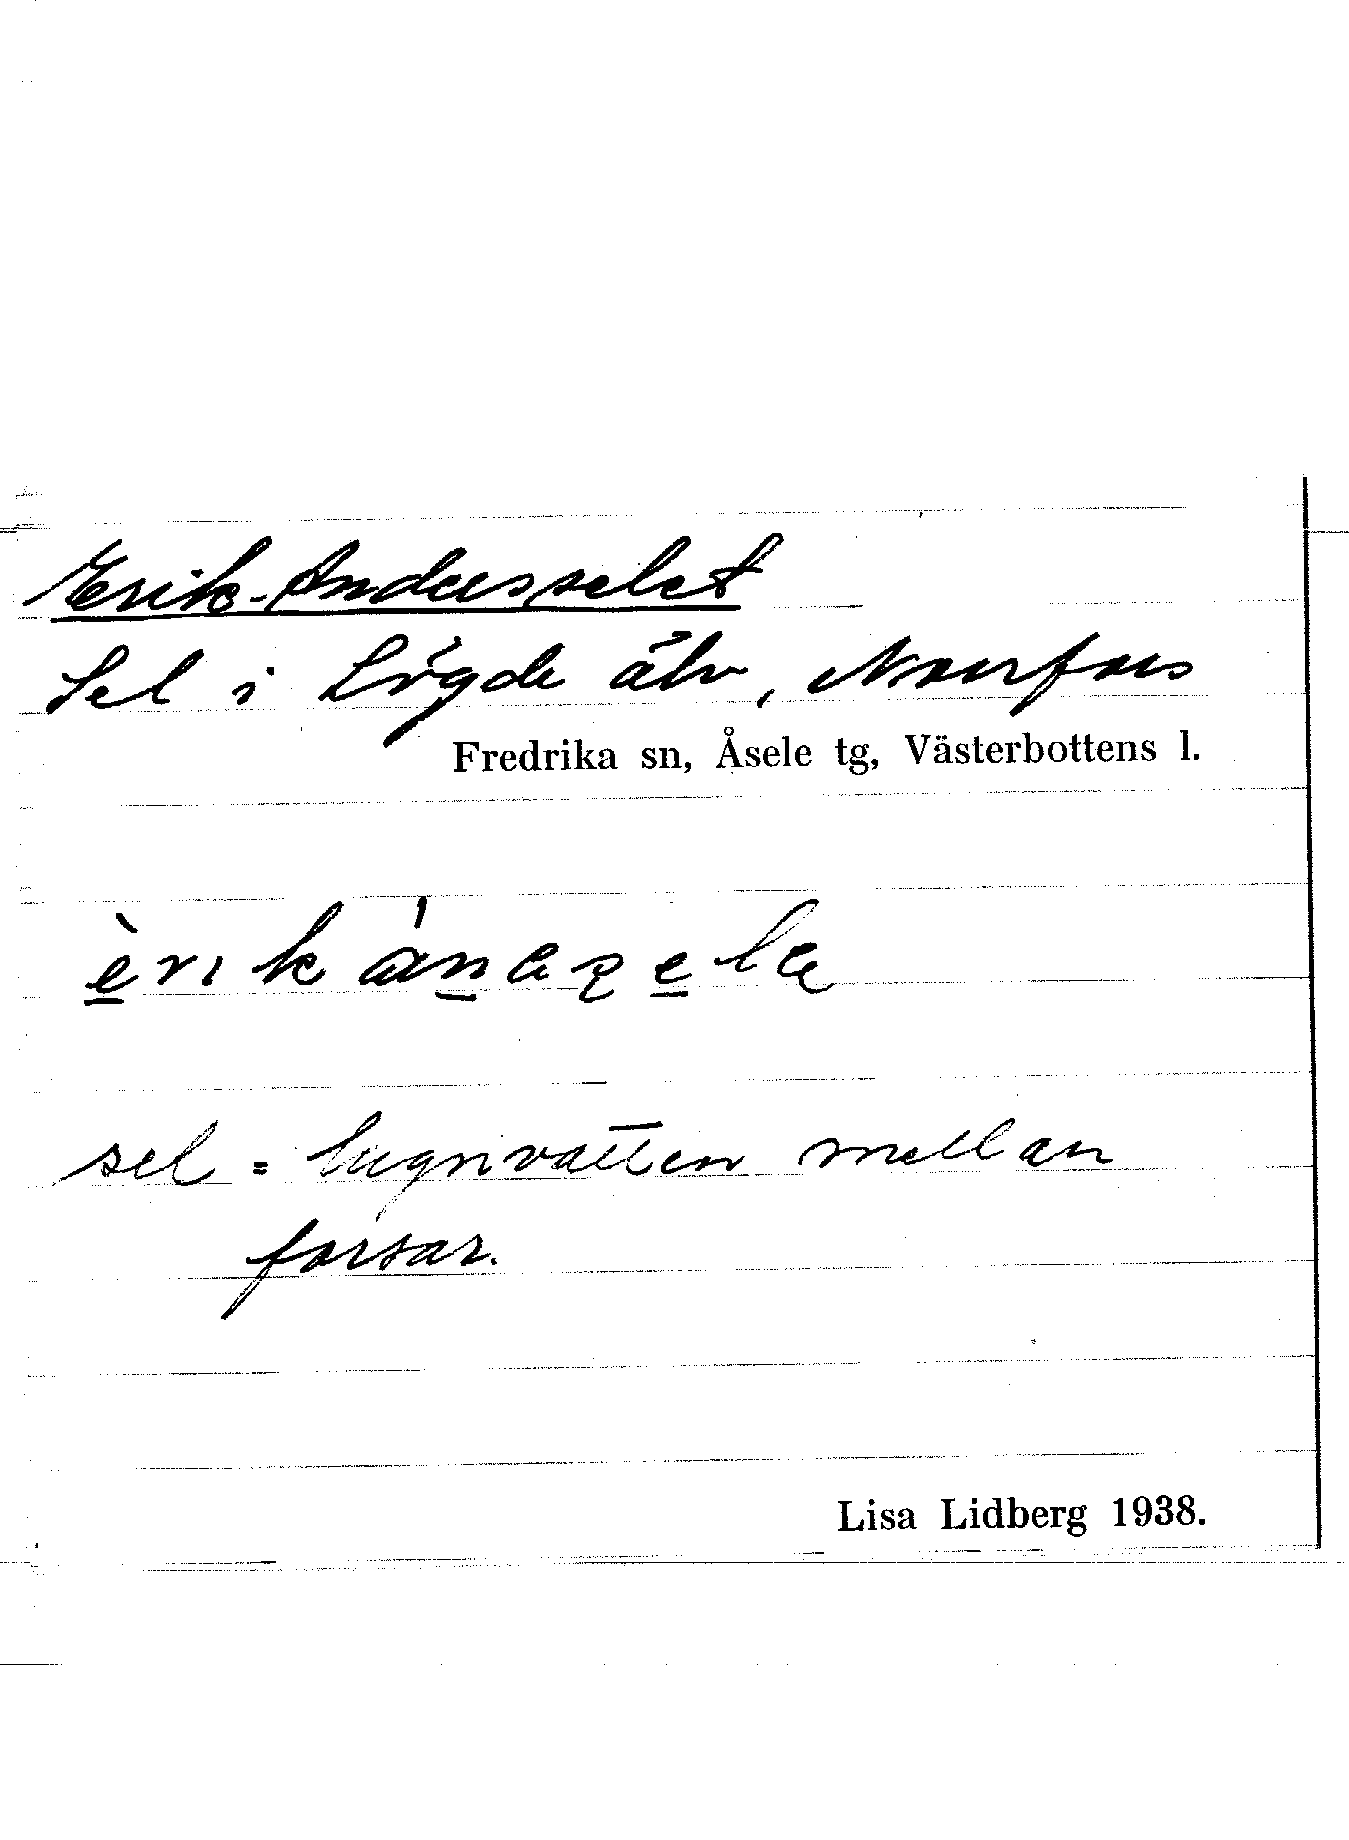 Erik-Andersselet
Sel i Lögde älv, Norrfors
Fredrika sn, Åsele tg, Västerbottens l.
sel = lugnvatten mellan
forsar.
Lisa Lidberg 1938.